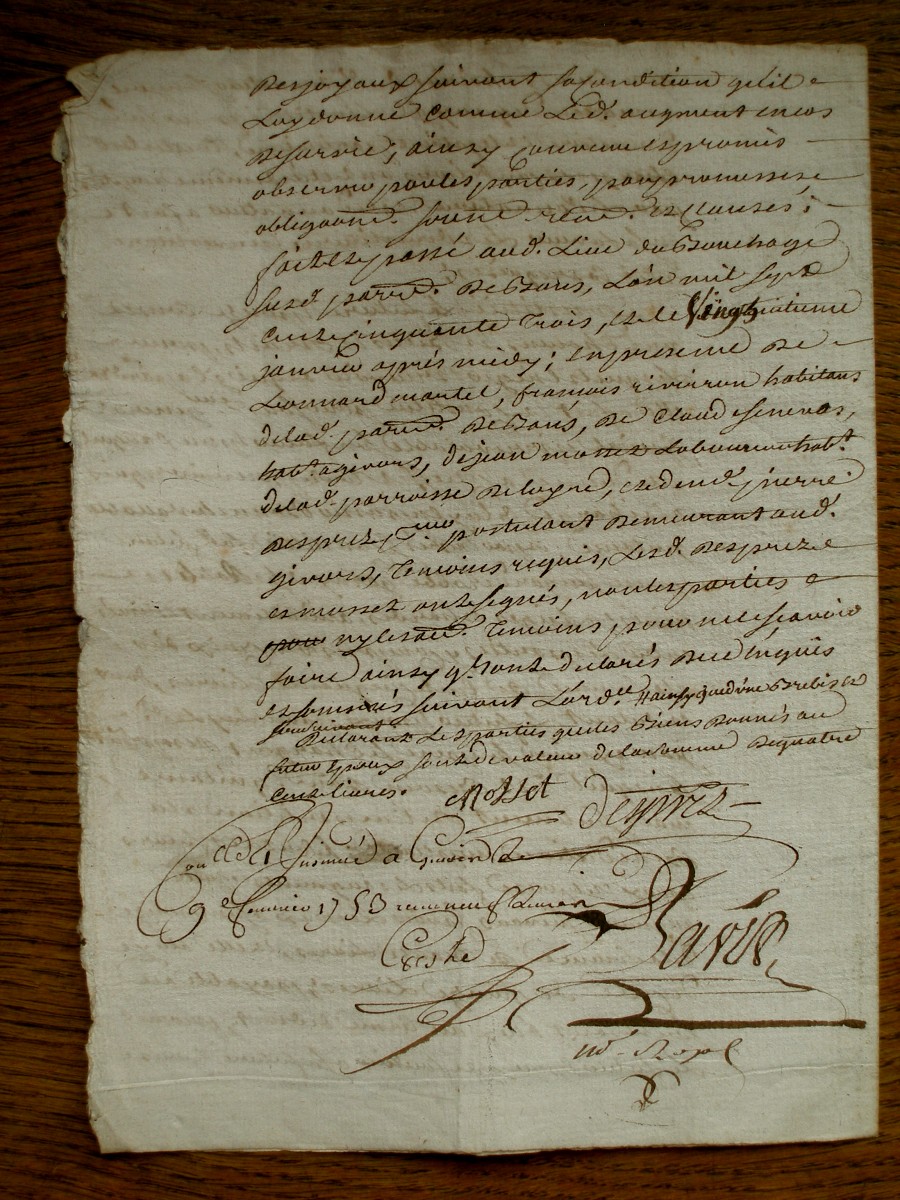 Des joyaux suivant sa condition qu'il
Luy donne comme Led. augment en cas
De survie, ainsy convenu et promis
observer par les parties, par promesse
obligaõnd. soumõ. renõd. et clauses;
fait et passé aud. Lieu du Bouchage
susd. parrd. De Bans, L'an mil sept
Cent cinquante trois, et le Vingt
janvier après midy; en presence De
Leonnard martel, françois rivoiron habitans
delad. parrd. De Bans, De Claude senevas,
habt. a givors, de jean mosset Laboureur habt.
delad. parroisse De Loyre, et de me. pierre
Desprez postulant Demeurant aud.
givors, Temoins requis, Lesd. Desprez
et mosset ont signés, non les parties
ny les aud. Temoins pour ne scavoir
faire ainsy qu'ils ont declarés De ce enquis
et sommés suivant L'ord. ainsy que d'une Brebis et
son suivant
Declarant Les parties que les Biens Donnés au
futur Epoux sont de valeur de la somme De quatre
Cent Livres. Mosset Desprez
Conllé Insinué a Givors Le
9 e fevrier 1753
Bavis
nore. Royal